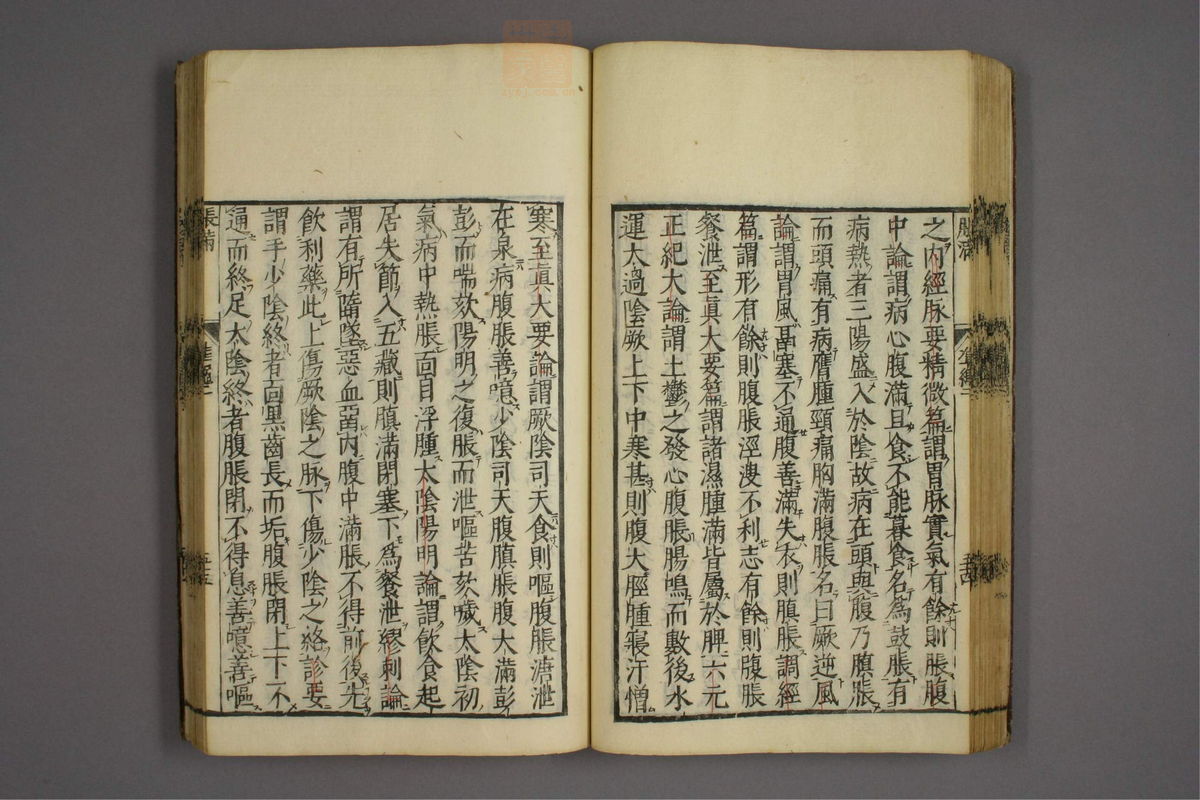 之内經脉要精微篇謂胃脉實氣有餘則脹腹
中論謂病心腹滿旦食不能暮食名爲鼓脹有
病熱者三陽盛入於陰故病在頭與腹乃䐜脹
而頭痛有病膺腫頸痛胸滿腹脹名曰厥逆風
論謂胃風鬲塞不通腹善滿失衣則䐜脹調經
篇謂形有餘則腹脹涇溲不利志有餘則腹脹
飱泄至眞大要篇謂諸濕腫滿皆屬於脾六元
正紀大論謂土鬱之發心腹脹腸鳴而數後水
運太過陰厥上下中寒甚則腹大脛腫寢汗憎
脹滿
寒至眞大要論謂厥陰司天食則嘔腹脹溏泄
在泉病腹脹善噫少陰司天腹䐜脹腹大滿彭
彭而喘欬陽明之復脹而泄嘔苦欬噦太陰初
氣病中熱脹面目浮腫太陰陽明論謂飲食起
居失節入五藏則䐜滿閉塞下爲飱泄繆刺論
謂有所墮墜惡血留内腹中滿脹不得前後先
飲利藥此上傷厥陰之脉下傷少陰之絡診要
謂手少陰終者面黒齒長而垢腹脹閉上下不
通而終足太陰終者腹脹閉不得息善噫善嘔
脹滿